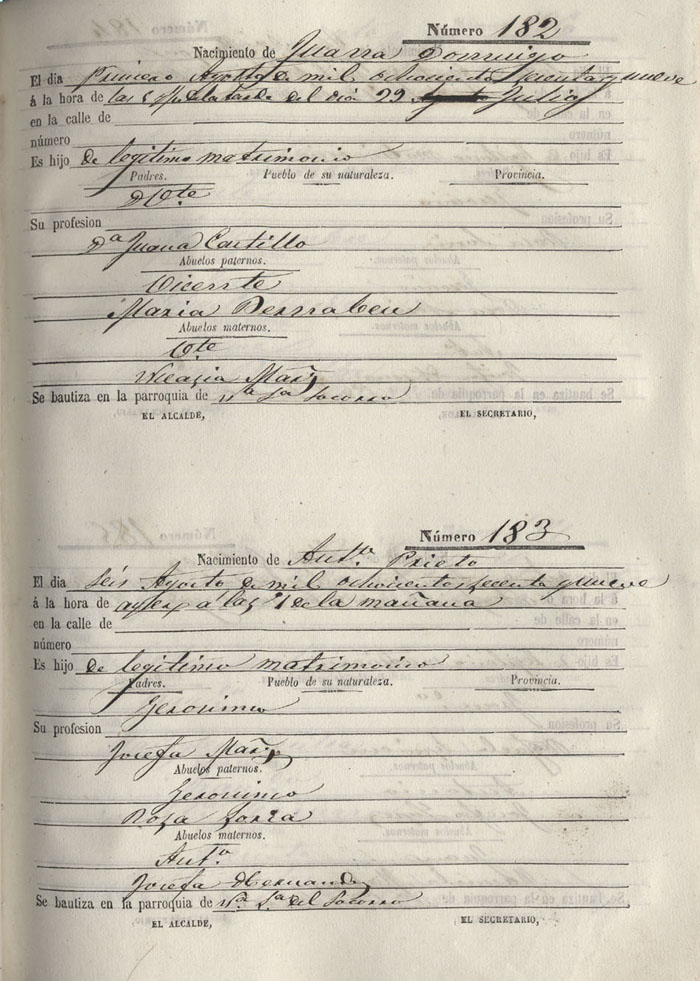 Número 182
Nacimiento de Juana Domingo
El dia Primero Agosto de mil ochocientos sesenta y nueve
á la hora de las 5 de la tarde del dia 29 Julio
en la calle de
número
Es hijo de legitimo matrimonio
Padres. Pueblo de su naturaleza. Provincia.
Vte
Su profesion
Da Juana Castillo
Abuelos paternos.
Vicente
Maria Bernabeu
Abuelos maternos.
Vte
Nicasia Marz
Se bautiza en la parroquia de Na Sa Socorro
EL ALCALDE, EL SECRETARIO,
Número 183
Nacimiento de Anto Prieto
El dia Seis Agosto de mil ochocientos sesenta y nueve
á la hora de ayer a las 1 de la mañana
en la calle de
número
Es hijo de legitimo matrimonio
Padres. Pueblo de su naturaleza. Provincia.
Geronimo
Su profesion
Josefa Marz
Abuelos paternos.
Geronimo
Rosa Soria
Abuelos maternos.
Anto
Josefa Hernandz
Se bautiza en la parroquia de Na Sa del Socorro
EL ALCALDE, EL SECRETARIO,